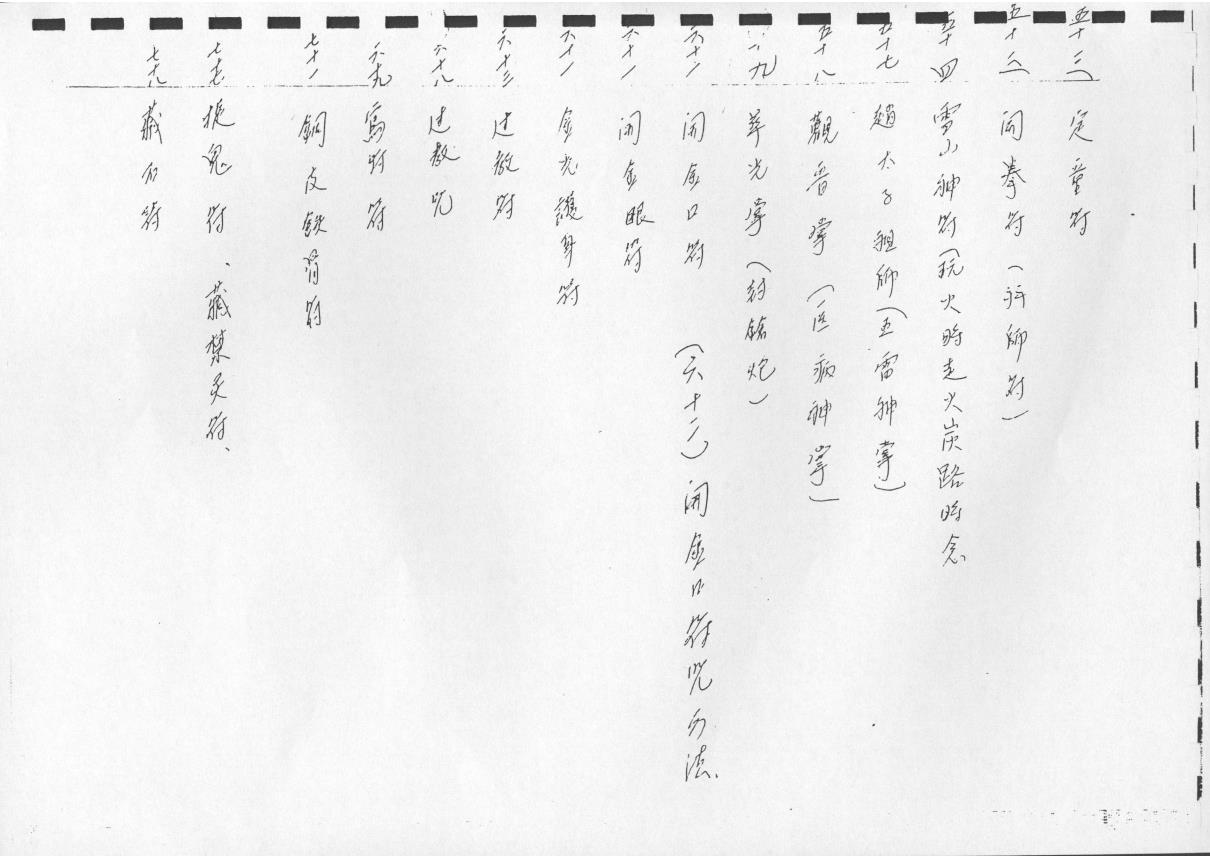 五十三 定童符
五十三 開拳符（拜師符）
五十四 雪山神符（玩火時走火炭路時念
五十七 趙太子祖師（五雷神掌）
五十八 觀音掌（医病神掌）
華光掌（封鎗炮）
六十二 開金口符 （六十二）開金口符咒方法、
六十一 開金眼符
六十一 金光護身符
六十三 过教符
六十八 过教咒
六十九 符
七十一 銅皮鉄骨符
鬼符、藏禁灵符、
七十八 藏 符